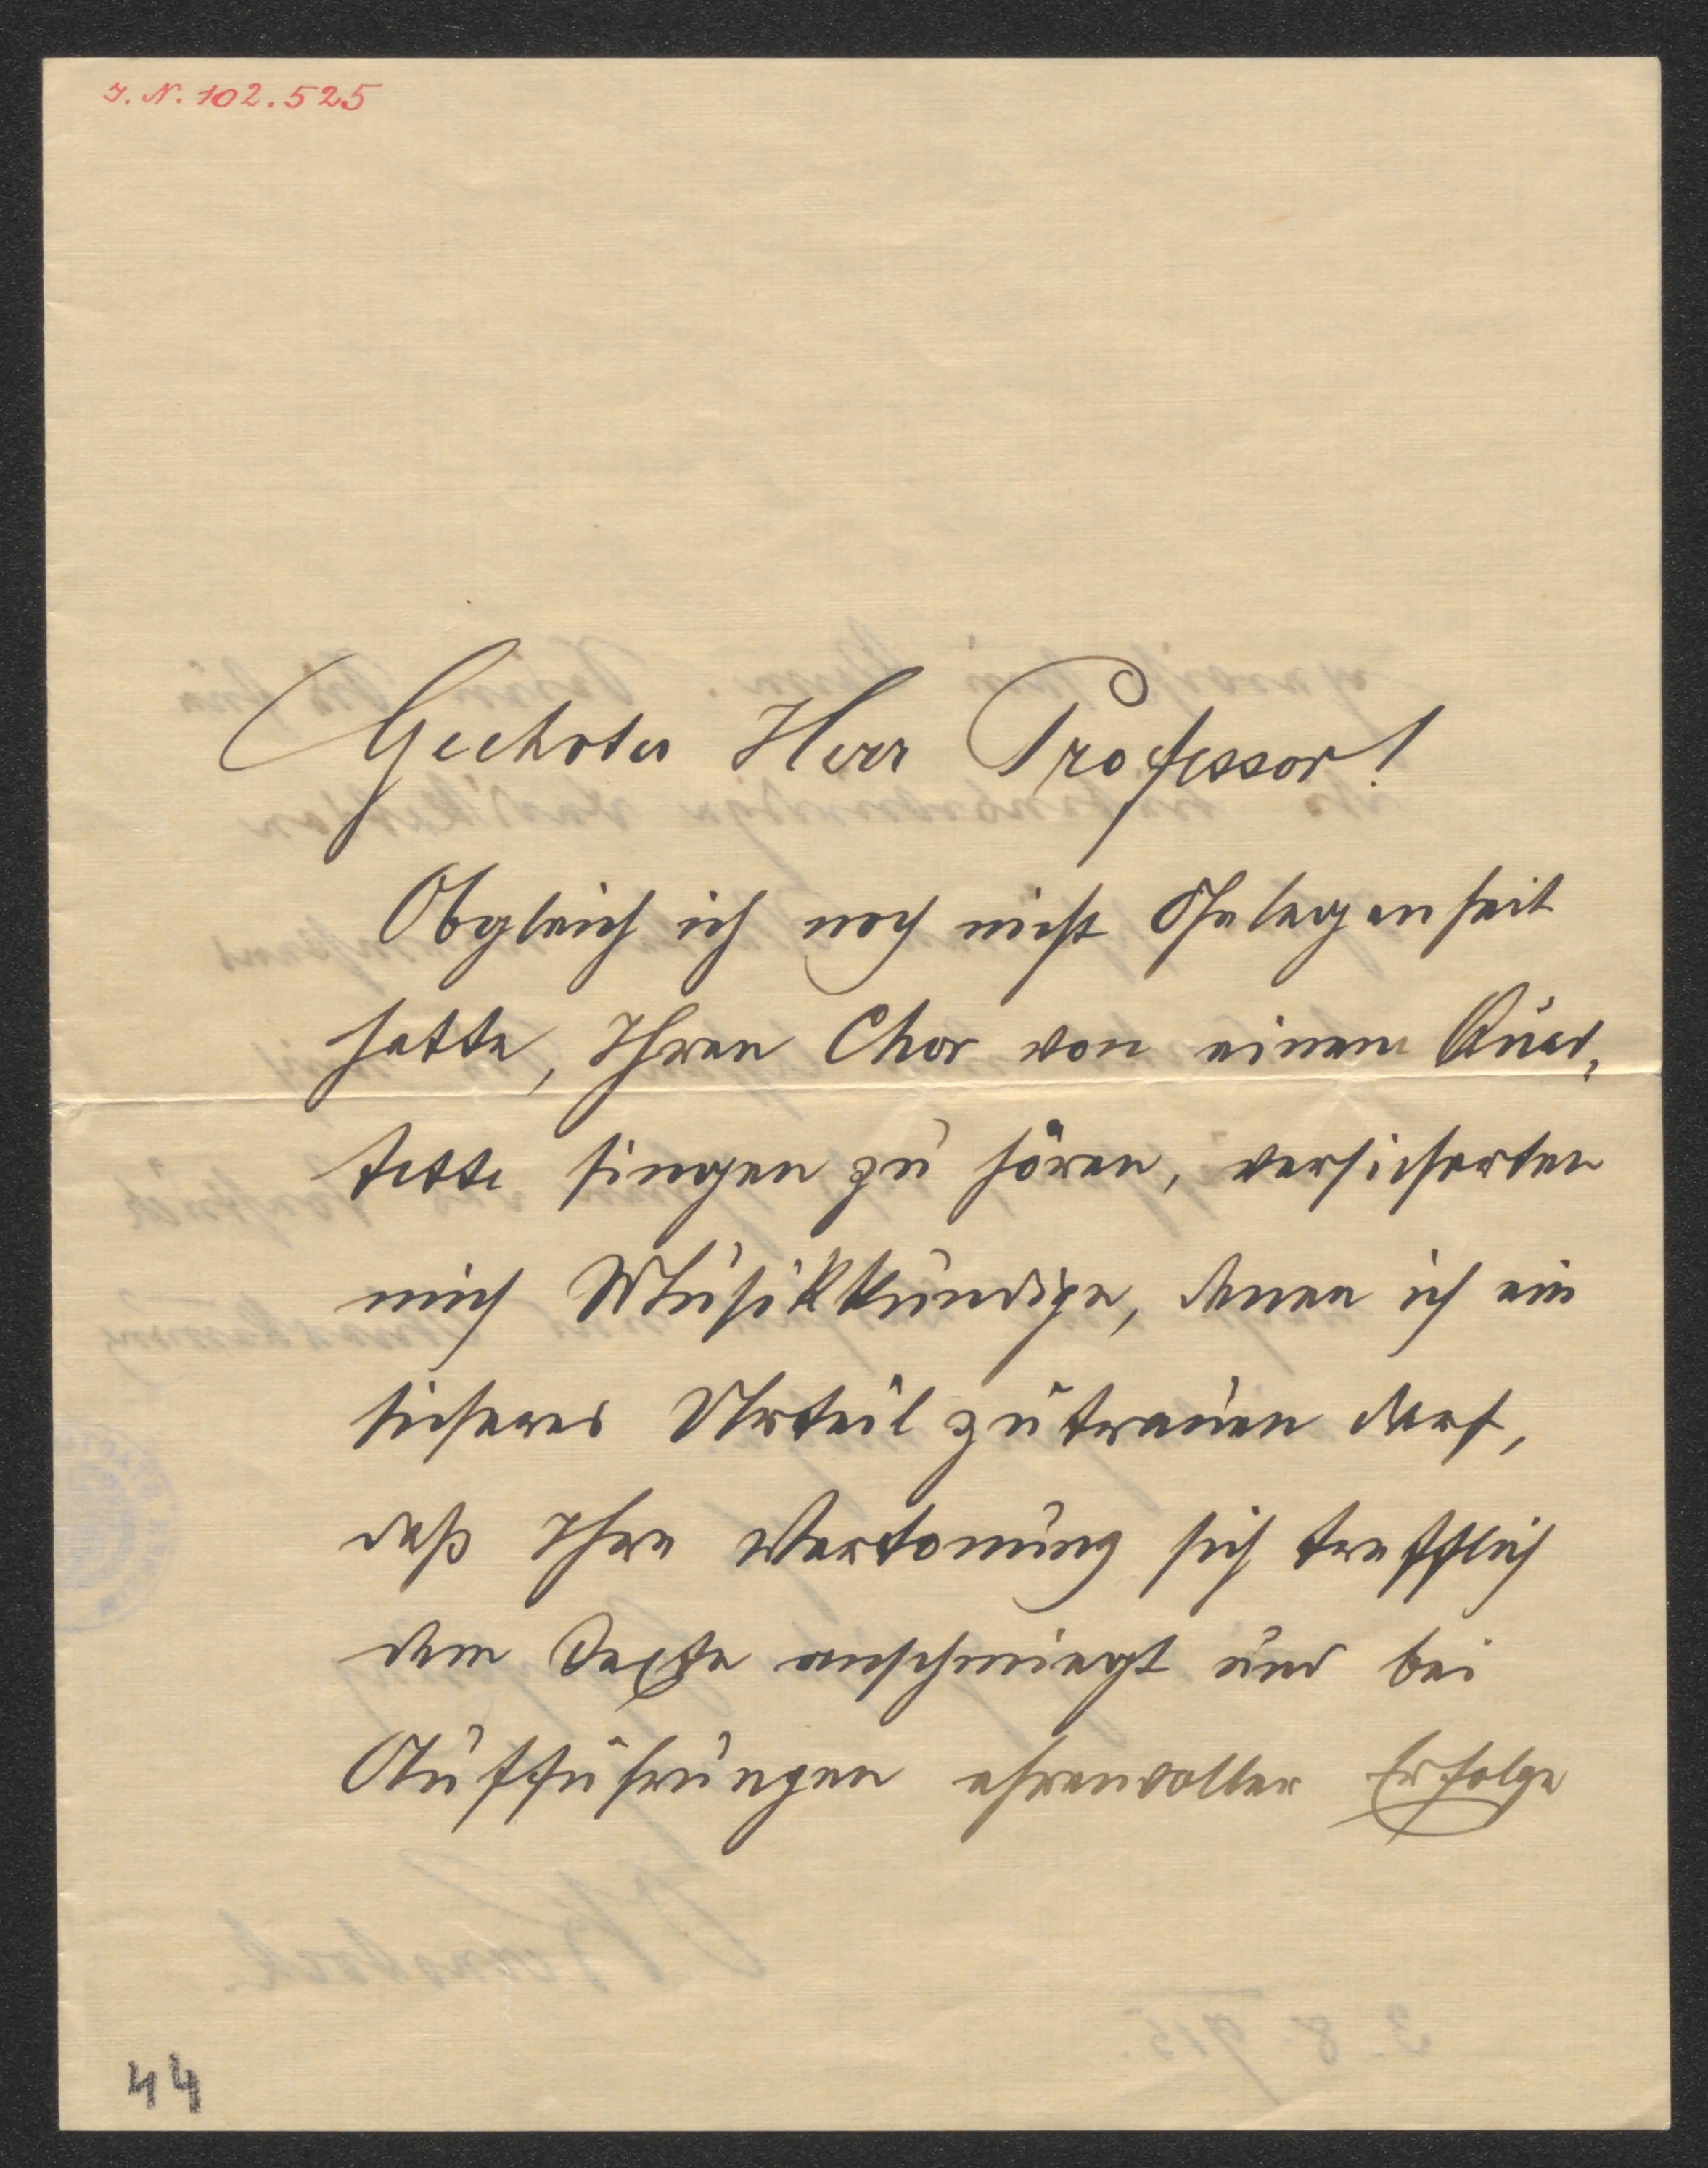 I. N. 102.525
Geehrter Herr Professor!
Obgleich ich noch nicht Gelegenheit
hatte, Ihren Chor von einem Quar-
tette singen zu hören, versicherten
mich Musikkundige, denen ich ein
sicheres Urteil zutrauen darf,
daß Ihre Vertonung sich trefflich
dem Texte anschmiegt und bei
Aufführungen ehrenvoller Erfolge
44